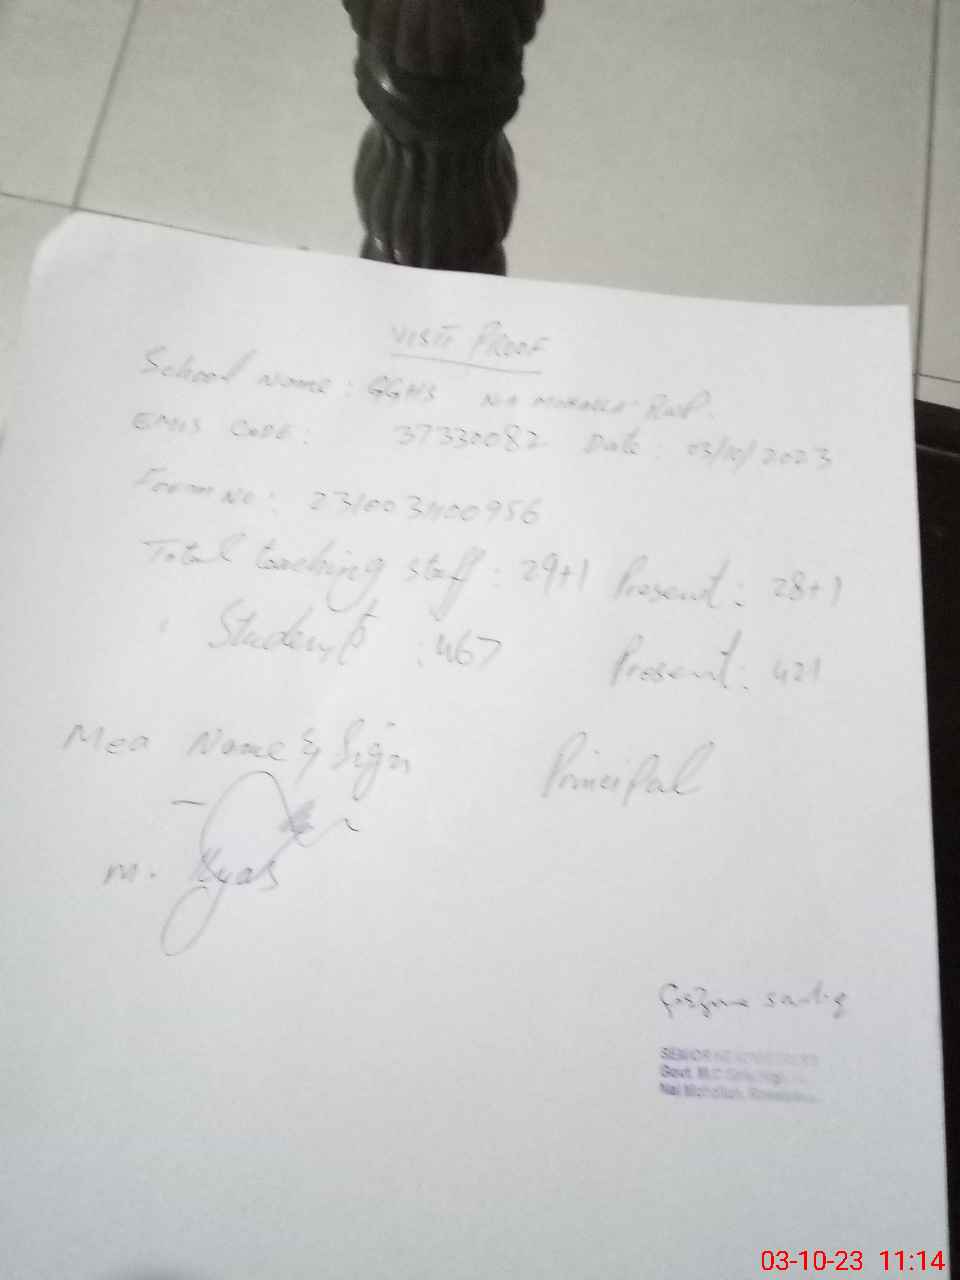 VISIT PROOF
School Name: GGHS N.A MOHALLA RWP.
EMIS CODE: 37330082 Date: 03/10/2023
Form No: 2310031100956
Total teaching staff: 29+1 Present: 28+1
" Students: 467 Present: 421
Mea Name & Sign Principal
M. Ilyas
SENIOR HEADMISTRESS
Govt. M.C Girls High
Nai Mohallah, Rawalpindi
03-10-23 11:14